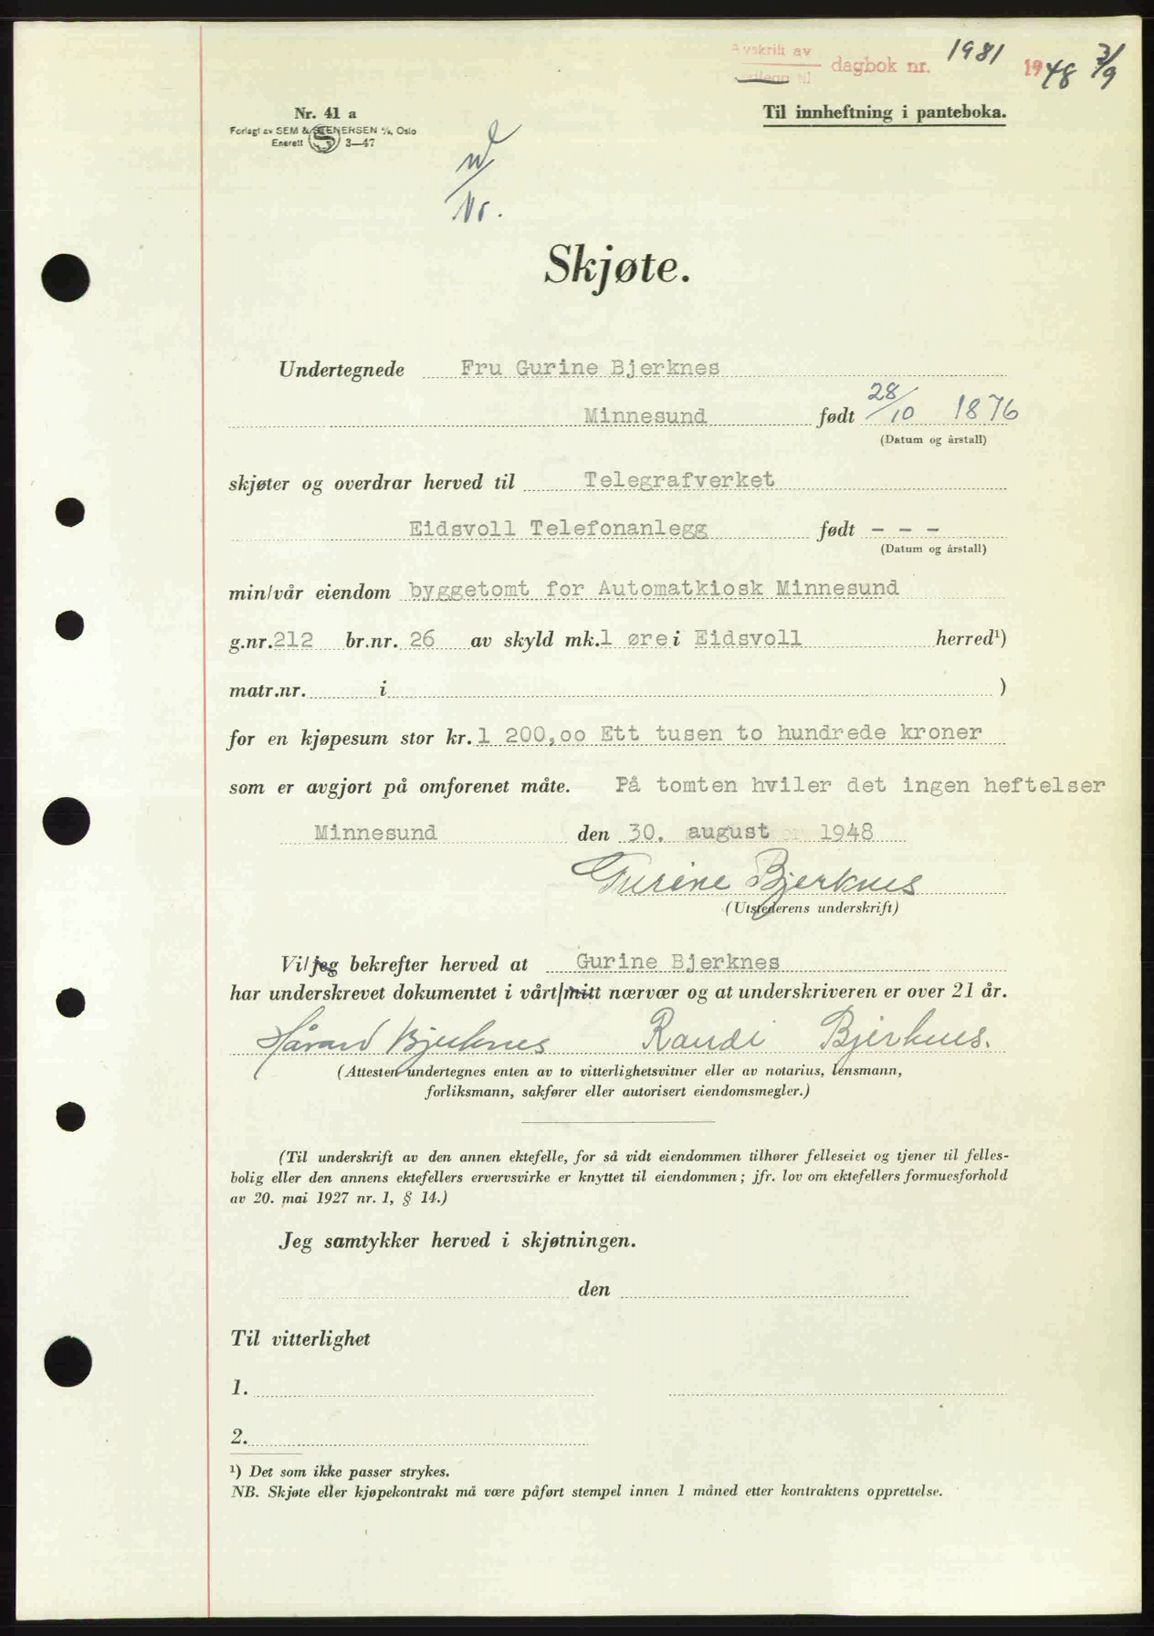 Avskrift av
dagbok nr. 1981 1948 3/9
Nr. 41 a
Til innheftning i panteboka.
Forlagt av SEM & STENERSEN A/S, Oslo
Enerett 3—47
Nr.
Skjøte.
Undertegnede Fru Gurine Bjerknes
Minnesund født 28/10 1876
(Datum og årstall)
skjøter og overdrar herved til Telegrafverket
Eidsvoll Telefonanlegg født - - -
(Datum og årstall)
min/vår eiendom byggetomt for Automatkiosk Minnesund
g.nr. 212 br.nr. 26 av skyld mk. 1 øre i Eidsvoll herred¹)
matr.nr. i )
for en kjøpesum stor kr. 1 200,oo Ett tusen to hundrede kroner
som er avgjort på omforenet måte. På tomten hviler det ingen heftelser
Minnesund den 30. august 1948
Gurine Bjerknes
(Utstederens underskrift)
Vi/jeg bekrefter herved at Gurine Bjerknes
har underskrevet dokumentet i vårt/mitt nærvær og at underskriveren er over 21 år.
Håvard Bjerknes Randi Bjerknes.
(Attesten undertegnes enten av to vitterlighetsvitner eller av notarius, lensmann,
forliksmann, sakfører eller autorisert eiendomsmegler.)
(Til underskrift av den annen ektefelle, for så vidt eiendommen tilhører felleseiet og tjener til felles-
bolig eller den annens ektefellers ervervsvirke er knyttet til eiendommen; jfr. lov om ektefellers formuesforhold
av 20. mai 1927 nr. 1, § 14.)
Jeg samtykker herved i skjøtningen.
den
Til vitterlighet
1.
2.
¹) Det som ikke passer strykes.
NB. Skjøte eller kjøpekontrakt må være påført stempel innen 1 måned etter kontraktens opprettelse.